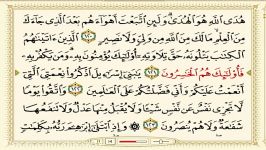 هُدَى ٱللَّهِ هُوَ ٱلْهُدَىٰ وَلَئِنِ ٱتَّبَعْتَ أَهْوَآءَهُم بَعْدَ ٱلَّذِى جَآءَكَ
مِنَ ٱلْعِلْمِ مَا لَكَ مِنَ ٱللَّهِ مِن وَلِىٍّ وَلَا نَصِيرٍ ١٢٠ ٱلَّذِينَ ءَاتَيْنَٰهُمُ
ٱلْكِتَٰبَ يَتْلُونَهُۥ حَقَّ تِلَاوَتِهِۦٓ أُو۟لَٰٓئِكَ يُؤْمِنُونَ بِهِۦ وَمَن يَكْفُرْ بِهِۦ
فَأُو۟لَٰٓئِكَ هُمُ ٱلْخَٰسِرُونَ ١٢١ يَٰبَنِىٓ إِسْرَٰٓءِيلَ ٱذْكُرُوا۟ نِعْمَتِىَ ٱلَّتِىٓ
أَنْعَمْتُ عَلَيْكُمْ وَأَنِّى فَضَّلْتُكُمْ عَلَى ٱلْعَٰلَمِينَ ١٢٢ وَٱتَّقُوا۟ يَوْمًا
لَّا تَجْزِى نَفْسٌ عَن نَّفْسٍ شَيْـًٔا وَلَا يُقْبَلُ مِنْهَا عَدْلٌ وَلَا تَنفَعُهَا
شَفَٰعَةٌ وَلَا هُمْ يُنصَرُونَ ١٢٣ وَإِذِ ٱبْتَلَىٰٓ إِبْرَٰهِۦمَ رَبُّهُۥ بِكَلِمَٰتٍ